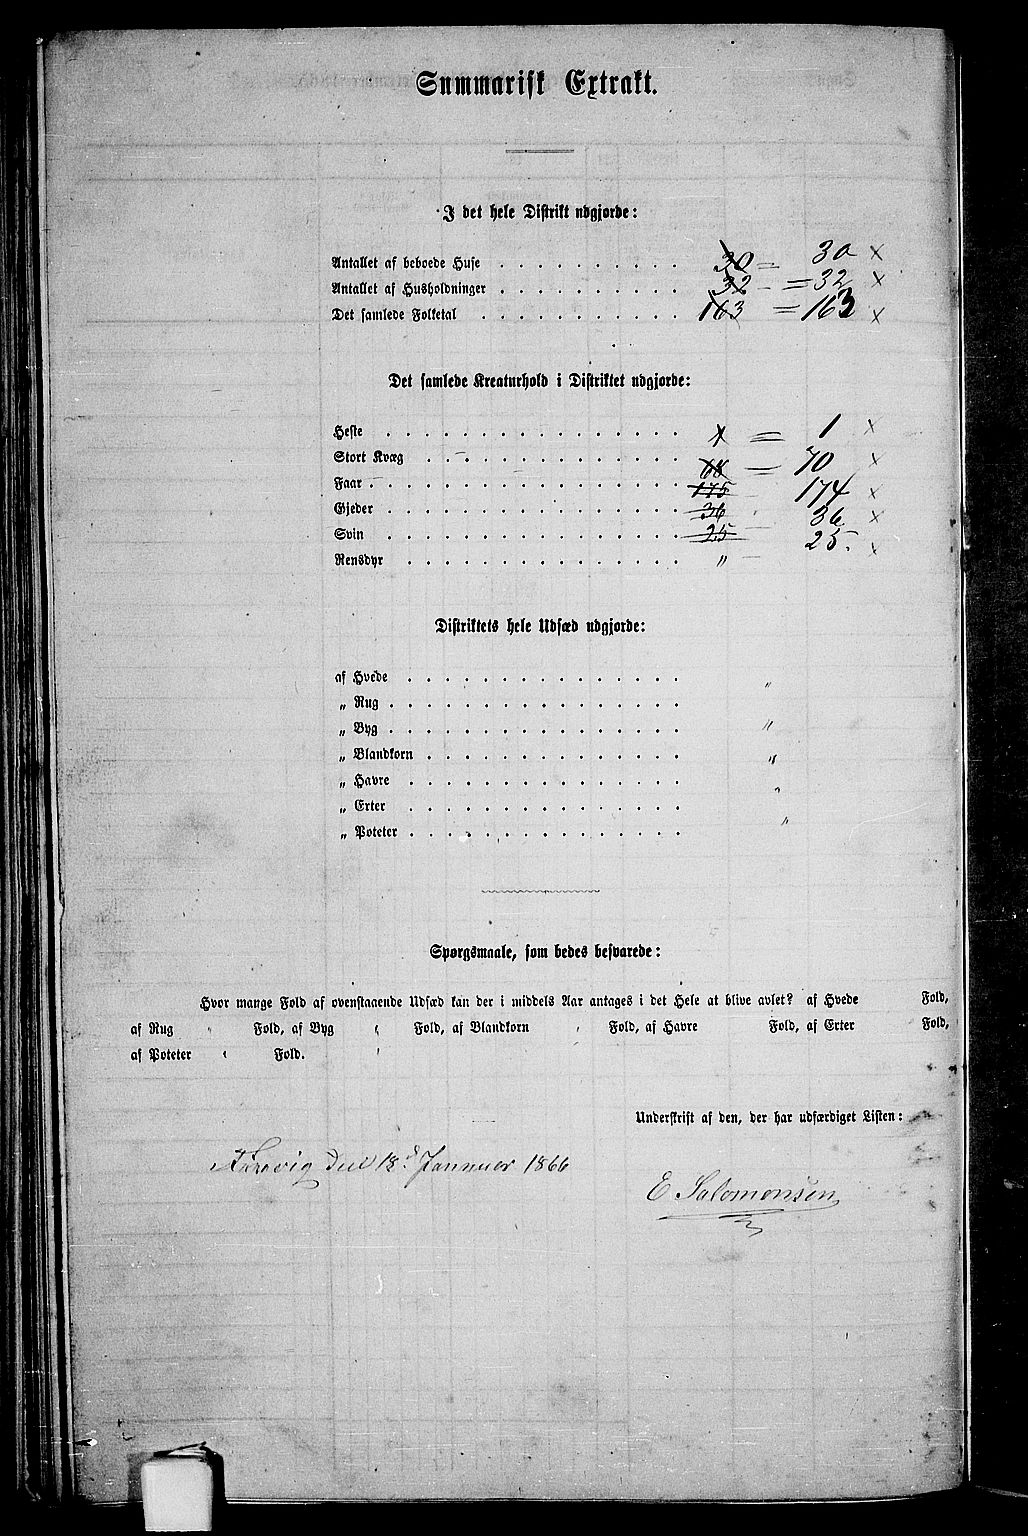 Summarisk Extrakt.
I det hele Distrikt udgjorde:
Antallet af beboede Huse . . . . . . . . . . 30 = 30 ×
Antallet af Husholdninger . . . . . . . . . . 32 = 32 ×
Det samlede Folketal . . . . . . . . . . . 163 = 163 ×
Det samlede Kreaturhold i Distriktet udgjorde:
Heste . . . . . . . . . . . . . . . . 1 = 1 ×
Stort Kvæg . . . . . . . . . . . . . . 68 = 70 ×
Faar . . . . . . . . . . . . . . . . . 175 174 ×
Gjeder . . . . . . . . . . . . . . . . 36 36 ×
Svin . . . . . . . . . . . . . . . . 25 25. ×
Rensdyr . . . . . . . . . . . . . . . "
Distriktets hele Udsæd udgjorde:
af Hvede . . . . . . . . . . . . . . . "
„ Rug . . . . . . . . . . . . . . . .
„ Byg . . . . . . . . . . . . . . . . "
„ Blandkorn . . . . . . . . . . . . . . "
„ Havre . . . . . . . . . . . . . . . "
„ Erter . . . . . . . . . . . . . . .
„ Poteter . . . . . . . . . . . . . . . "
Spørgsmaale, som bedes besvarede:
Hvor mange Fold af ovenstaaende Udsæd kan der i middels Aar antages i det Hele at blive avlet? af Hvede Fold,
af Rug Fold, af Byg Fold, af Blandkorn Fold, af Havre Fold, af Erter Fold,
af Poteter Fold.
Underskrift af den, der har udfærdiget Listen:
den 18d Januar 1866
E. Salomonsen